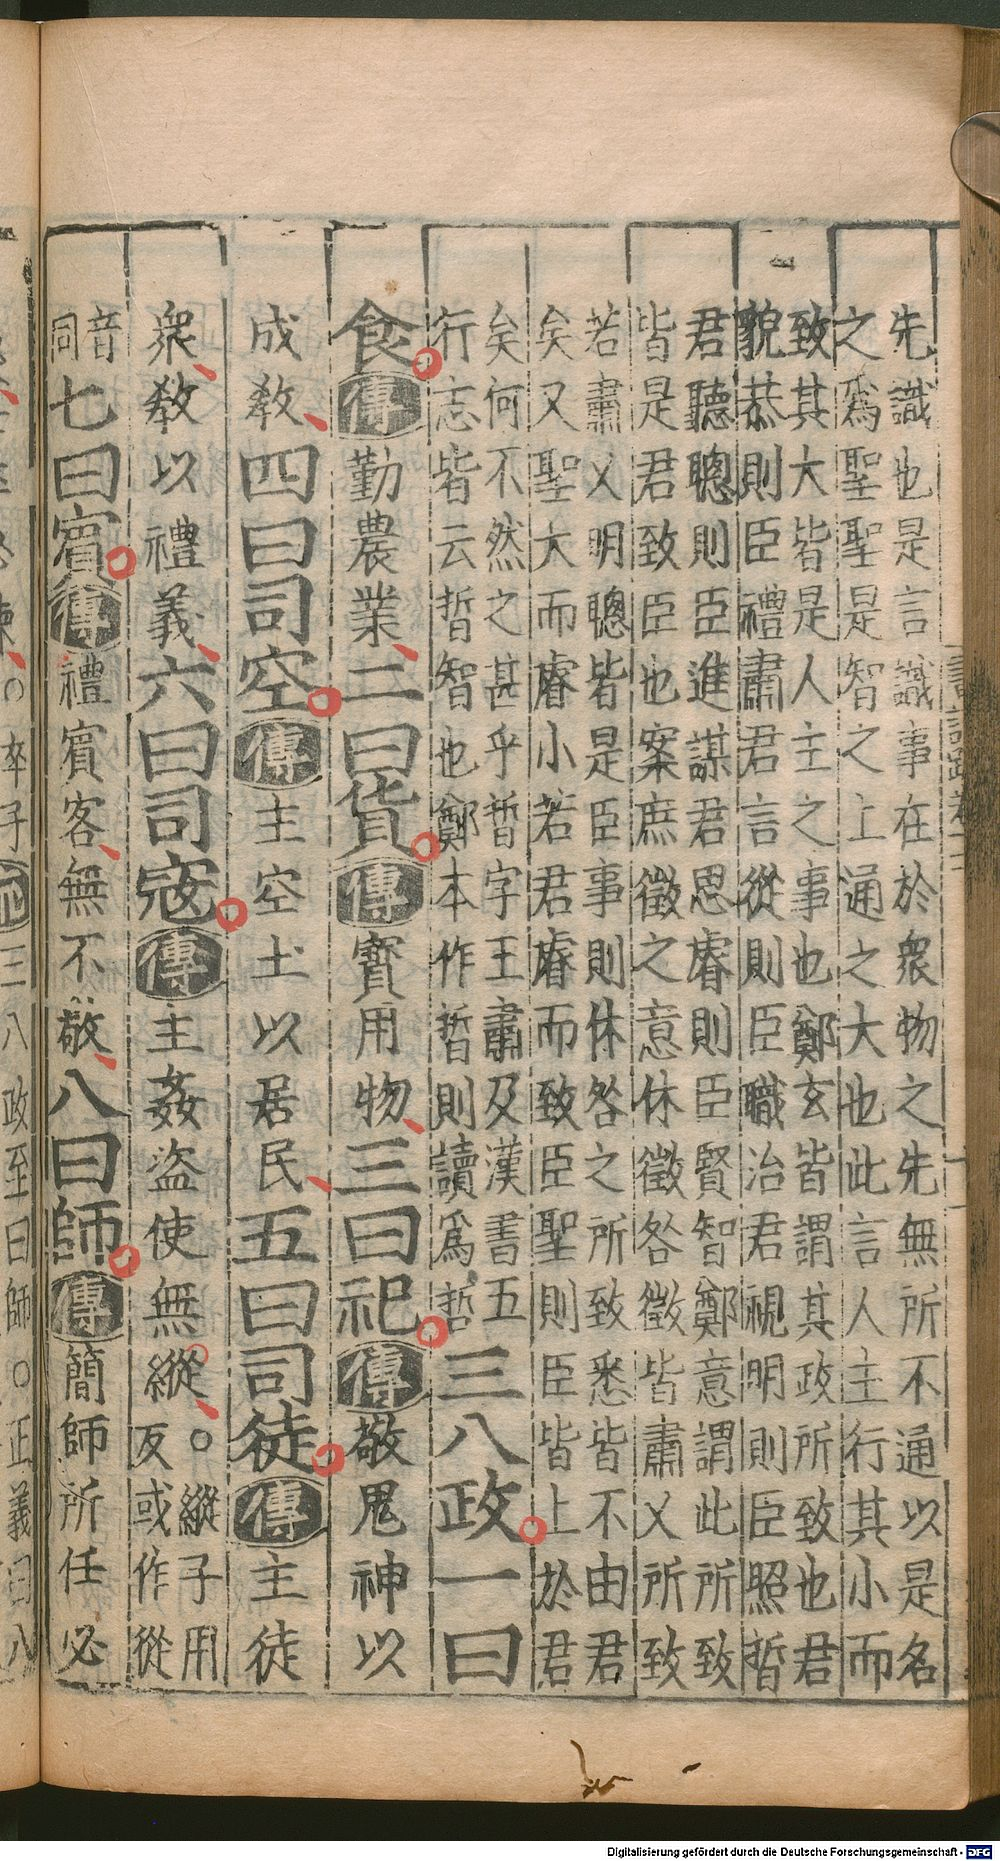 先識也是言識事在於衆物之先無所不通以是名
之爲聖聖是智之上通之大也此言人主行其小而
致其大皆是人主之事也鄭玄皆謂其政所致也君
貌恭則臣禮肅君言從則臣職治君視明則臣照晢
君聽聰則臣進謀君思睿則臣賢智鄭意謂此所致
皆是君致臣也案庶徵之意休徵咎徵皆肅乂所致
若肅乂明聰皆是臣事則休咎之所致悉皆不由君
矣又聖大而睿小若君睿而致臣聖則臣皆上於君
矣何不然之甚乎晢字王肅及漢書五
行志皆云晢智也鄭本作晢則讀爲哲
三八政一曰
食傳勤農業二曰貨傳寳用物三曰祀傳敬鬼神以
成敎四曰司空傳主空土以居民五曰司徒傳主徒
衆敎以禮義六曰司寇傳主姦盜使無縱○縱子用
反或作從
音
同七曰賓傳禮賓客無不敬八曰師傳簡師所任必
Digitalisierung gefördert durch die Deutsche Forschungsgemeinschaft - DFG